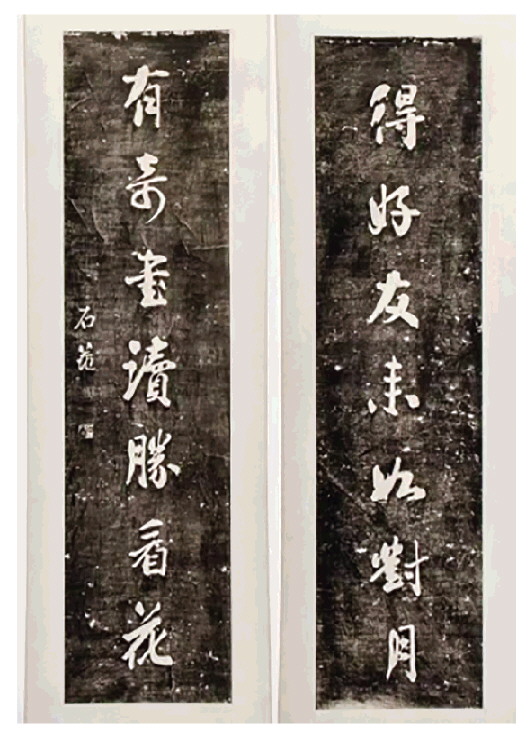 得好友來如對月
有奇書讀勝看花
石菴